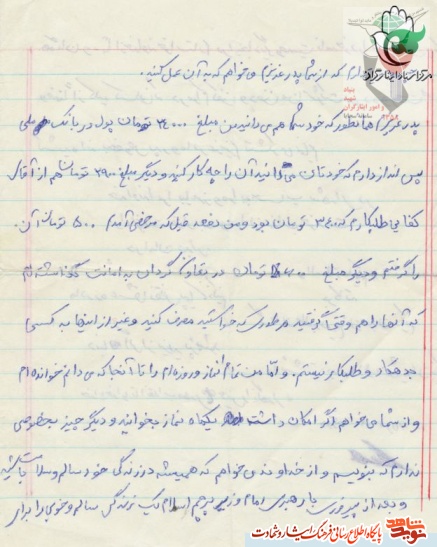 دارم که از شما پدر عزیزم می‌خواهم که به آن عمل کنید:
پدر عزیزم همانطور که خود شما هم می‌دانید من مبلغ ۲۴۰۰۰ تومان پول در بانک ملی
پس انداز دارم که خودتان می‌دانید آن را چه کار کنید و دیگر مبلغ ۲۹۰۰ تومان هم از آقای
کفایی طلبکارم که ۳۴۰۰ تومان بود و من دفعه قبل که مرخصی آمدم ۵۰۰ تومان آن
را گرفتم و دیگر مبلغ تومان در تعاون گردان به امانت گذاشته‌ام
که آنها را هم وقتی گرفتید هر طوری که خواستید مصرف کنید و غیر از اینها به کسی
بدهکار و طلبکار نیستم. و اما من تمام نماز و روزه‌ام را تا آنجا که می‌دانم خوانده‌ام
و از شما می‌خواهم اگر امکان داشت یکماه نماز بخوانید و دیگر چیز بخصوصی
ندارم که بنویسم و از خداوند می‌خواهم که همیشه در زندگی خود سالم و سلامت باشید
و بعد از پیروزی با رهبری امام و زیر پرچم اسلام یک زندگی سالم و خوبی را برای
مرکز اسناد ایثارگران
بنیاد
شهید
و امور ایثارگران
نوید شاهد
پایگاه اطلاع رسانی فرهنگ ایثار و شهادت